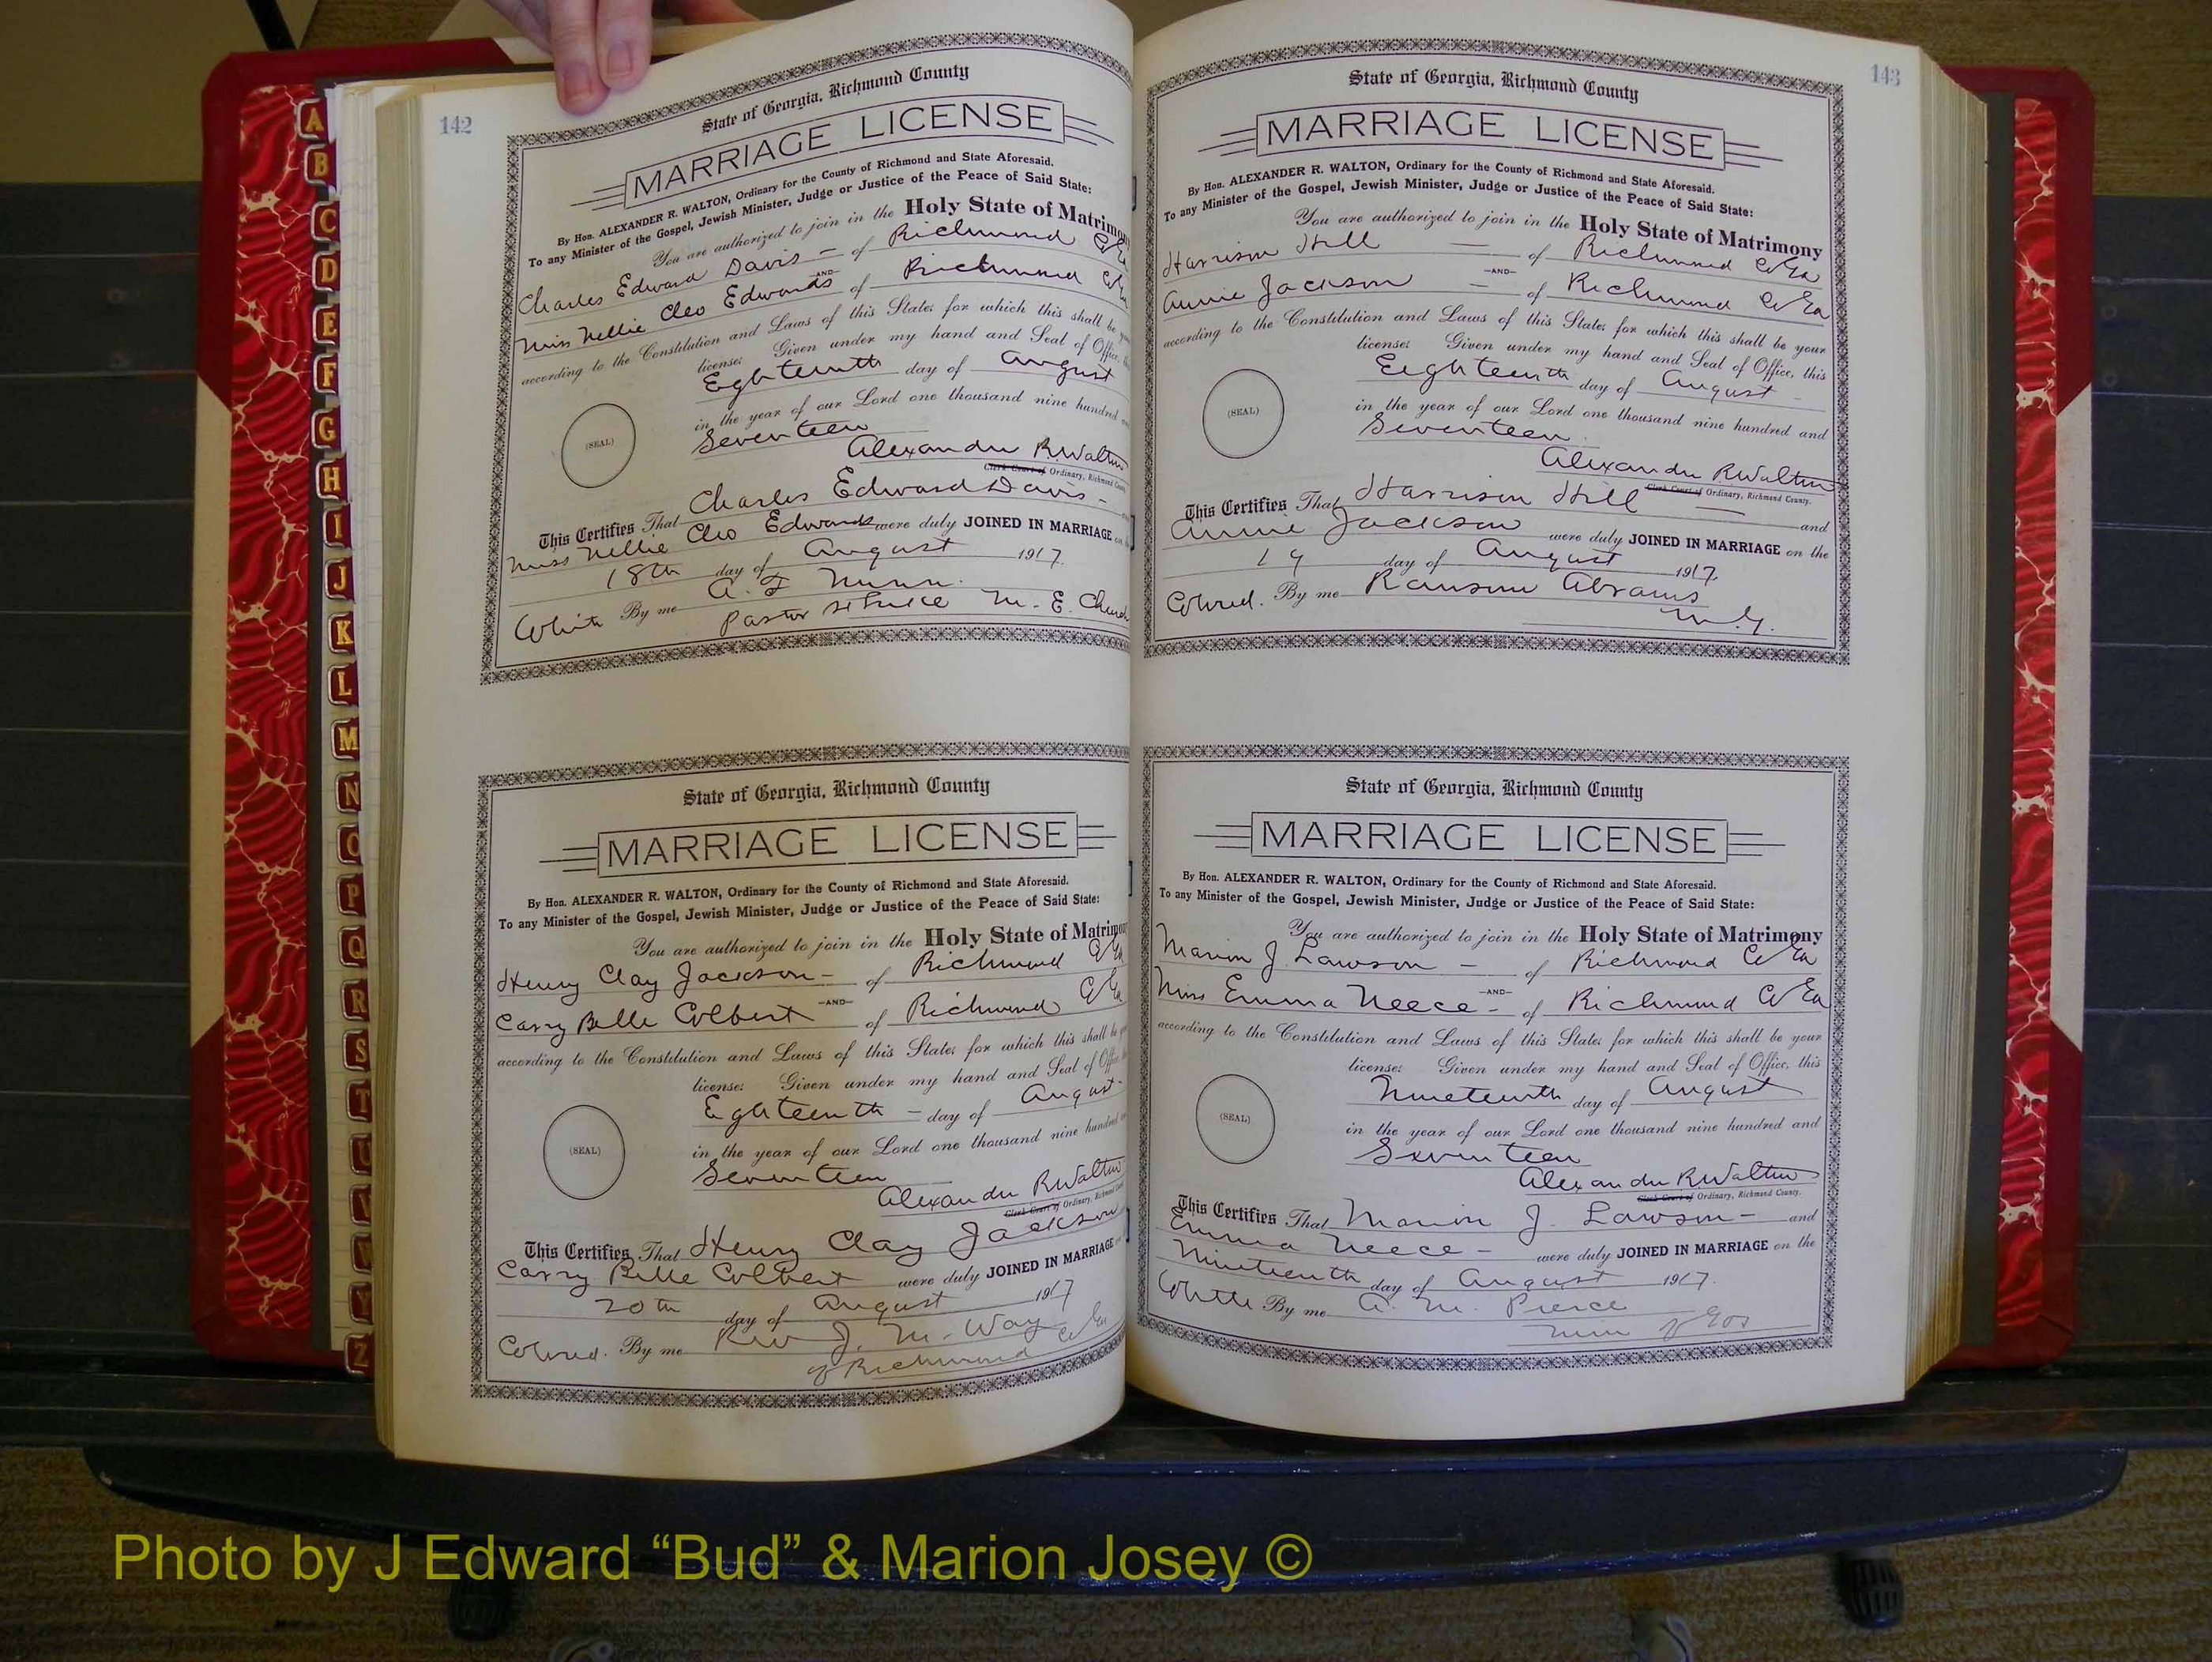 142
State of Georgia, Richmond County
MARRIAGE LICENSE
By Hon. ALEXANDER R. WALTON, Ordinary for the County of Richmond and State Aforesaid.
To any Minister of the Gospel, Jewish Minister, Judge or Justice of the Peace of Said State:
You are authorized to join in the Holy State of Matrimony
Charles Edward Davis - of Richmond Co Ga
-AND-
Miss Nellie Cleo Edwards of Richmond Co Ga
according to the Constitution and Laws of this State; for which this shall be
license: Given under my hand and Seal of Office,
Eighteenth day of August
(SEAL)
in the year of our Lord one thousand nine hundred
Seventeen
Alexander R. Walton
Clerk Court of Ordinary, Richmond County
This Certifies That Charles Edward Davis -
Miss Nellie Cleo Edwards were duly JOINED IN MARRIAGE on
18th day of August 1917.
White By me A. F. Nunn.
Pastor St Luke M. E. Church
State of Georgia, Richmond County
MARRIAGE LICENSE
By Hon. ALEXANDER R. WALTON, Ordinary for the County of Richmond and State Aforesaid.
To any Minister of the Gospel, Jewish Minister, Judge or Justice of the Peace of Said State:
You are authorized to join in the Holy State of Matrimony
Henry Clay Jackson - of Richmond Co Ga
-AND-
Carry Belle Colbert of Richmond Co Ga
according to the Constitution and Laws of this State; for which this shall be
license: Given under my hand and Seal of Office,
Eighteenth - day of August
(SEAL)
in the year of our Lord one thousand nine hundred
Seventeen
Alexander R Walton
Clerk Court of Ordinary, Richmond County
This Certifies That Henry Clay Jackson
Carry Belle Colbert were duly JOINED IN MARRIAGE on
20th day of August 1917
Colored. By me Rev J. M. Way
of Richmond Co Ga
143
State of Georgia, Richmond County
MARRIAGE LICENSE
By Hon. ALEXANDER R. WALTON, Ordinary for the County of Richmond and State Aforesaid.
To any Minister of the Gospel, Jewish Minister, Judge or Justice of the Peace of Said State:
You are authorized to join in the Holy State of Matrimony
Harrison Hill - of Richmond Co Ga
-AND-
Annie Jackson - of Richmond Co Ga
according to the Constitution and Laws of this State; for which this shall be your
license: Given under my hand and Seal of Office, this
Eighteenth day of August -
(SEAL)
in the year of our Lord one thousand nine hundred and
Seventeen.
Alexander R Walton
Clerk Court of Ordinary, Richmond County.
This Certifies That Harrison Hill - and
Annie Jackson were duly JOINED IN MARRIAGE on the
19 day of August 1917.
Colored. By me Ransom Abrams
M. G.
State of Georgia, Richmond County
MARRIAGE LICENSE
By Hon. ALEXANDER R. WALTON, Ordinary for the County of Richmond and State Aforesaid.
To any Minister of the Gospel, Jewish Minister, Judge or Justice of the Peace of Said State:
You are authorized to join in the Holy State of Matrimony
Marion J. Lawson - of Richmond Co Ga
-AND-
Miss Emma Neece - of Richmond Co Ga
according to the Constitution and Laws of this State; for which this shall be your
license: Given under my hand and Seal of Office, this
Nineteenth day of August
(SEAL)
in the year of our Lord one thousand nine hundred and
Seventeen
Alexander R Walton
Clerk Court of Ordinary, Richmond County.
This Certifies That Marion J. Lawson - and
Emma Neece - were duly JOINED IN MARRIAGE on the
Nineteenth day of August 1917.
White By me A. M. Pierce
Min of Gos
A
B
C
D
E
F
G
H
I
J
K
L
M
N
O
P
Q
R
S
T
U
V
W
Y
Z
Photo by J Edward “Bud” & Marion Josey ©